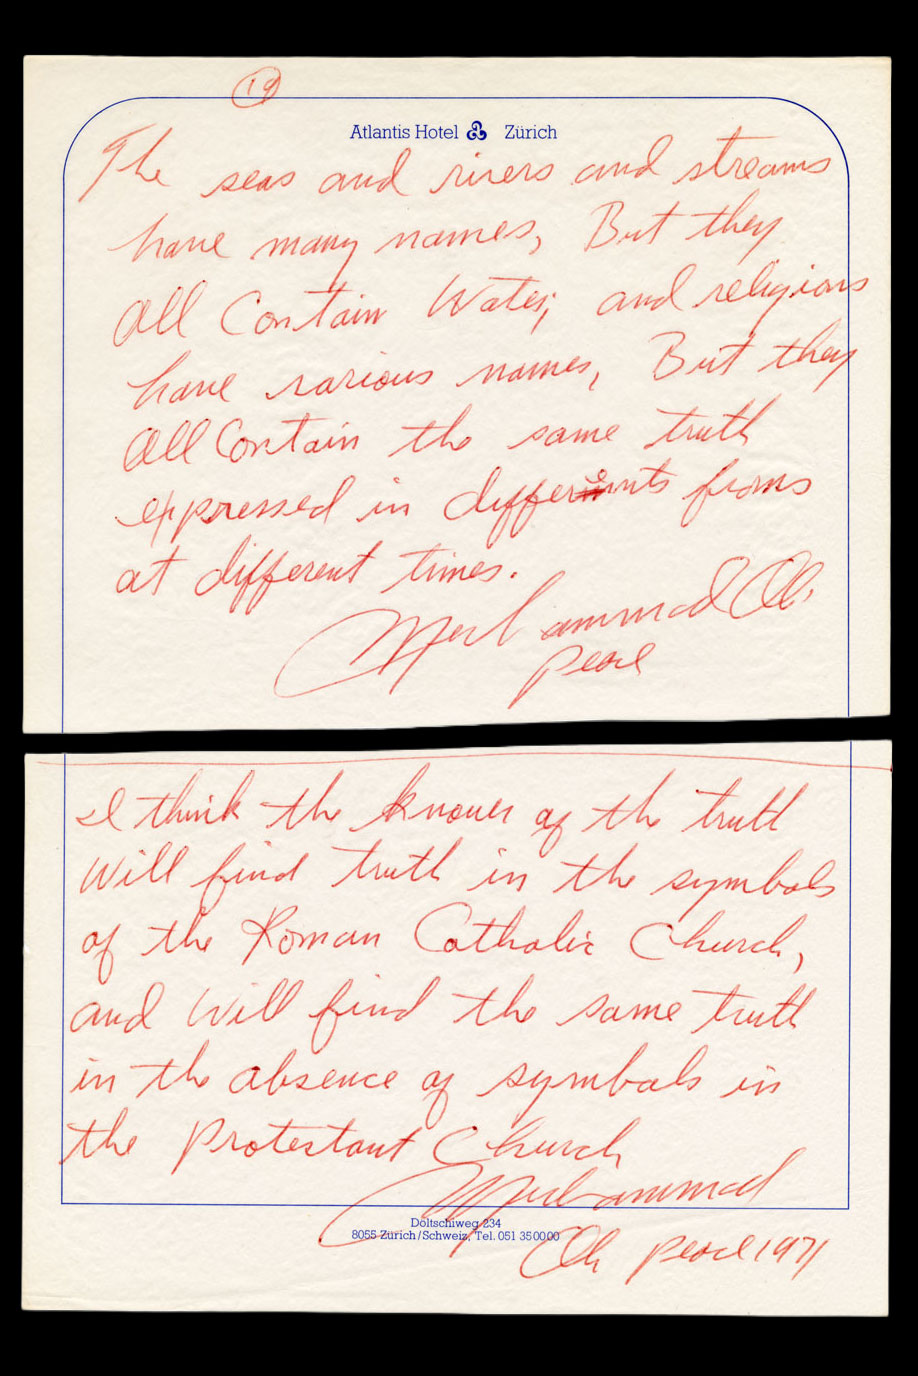 19
Atlantis Hotel Zürich
The seas and rivers and streams
have many names, But they
all Contain Water, and religions
have various names, But they
all Contain the same truth
expressed in differents froms
at different times.
Muhammad Ali
peace
I think the knower of the truth
Will find truth in the symbols
of the Roman Catholic Church,
and Will find the same truth
in the absence of symbols in
the Protestant Church
Muhammad
Döltschiweg 234
8055 Zürich/Schweiz, Tel. 051 350000
Ali peace 1971